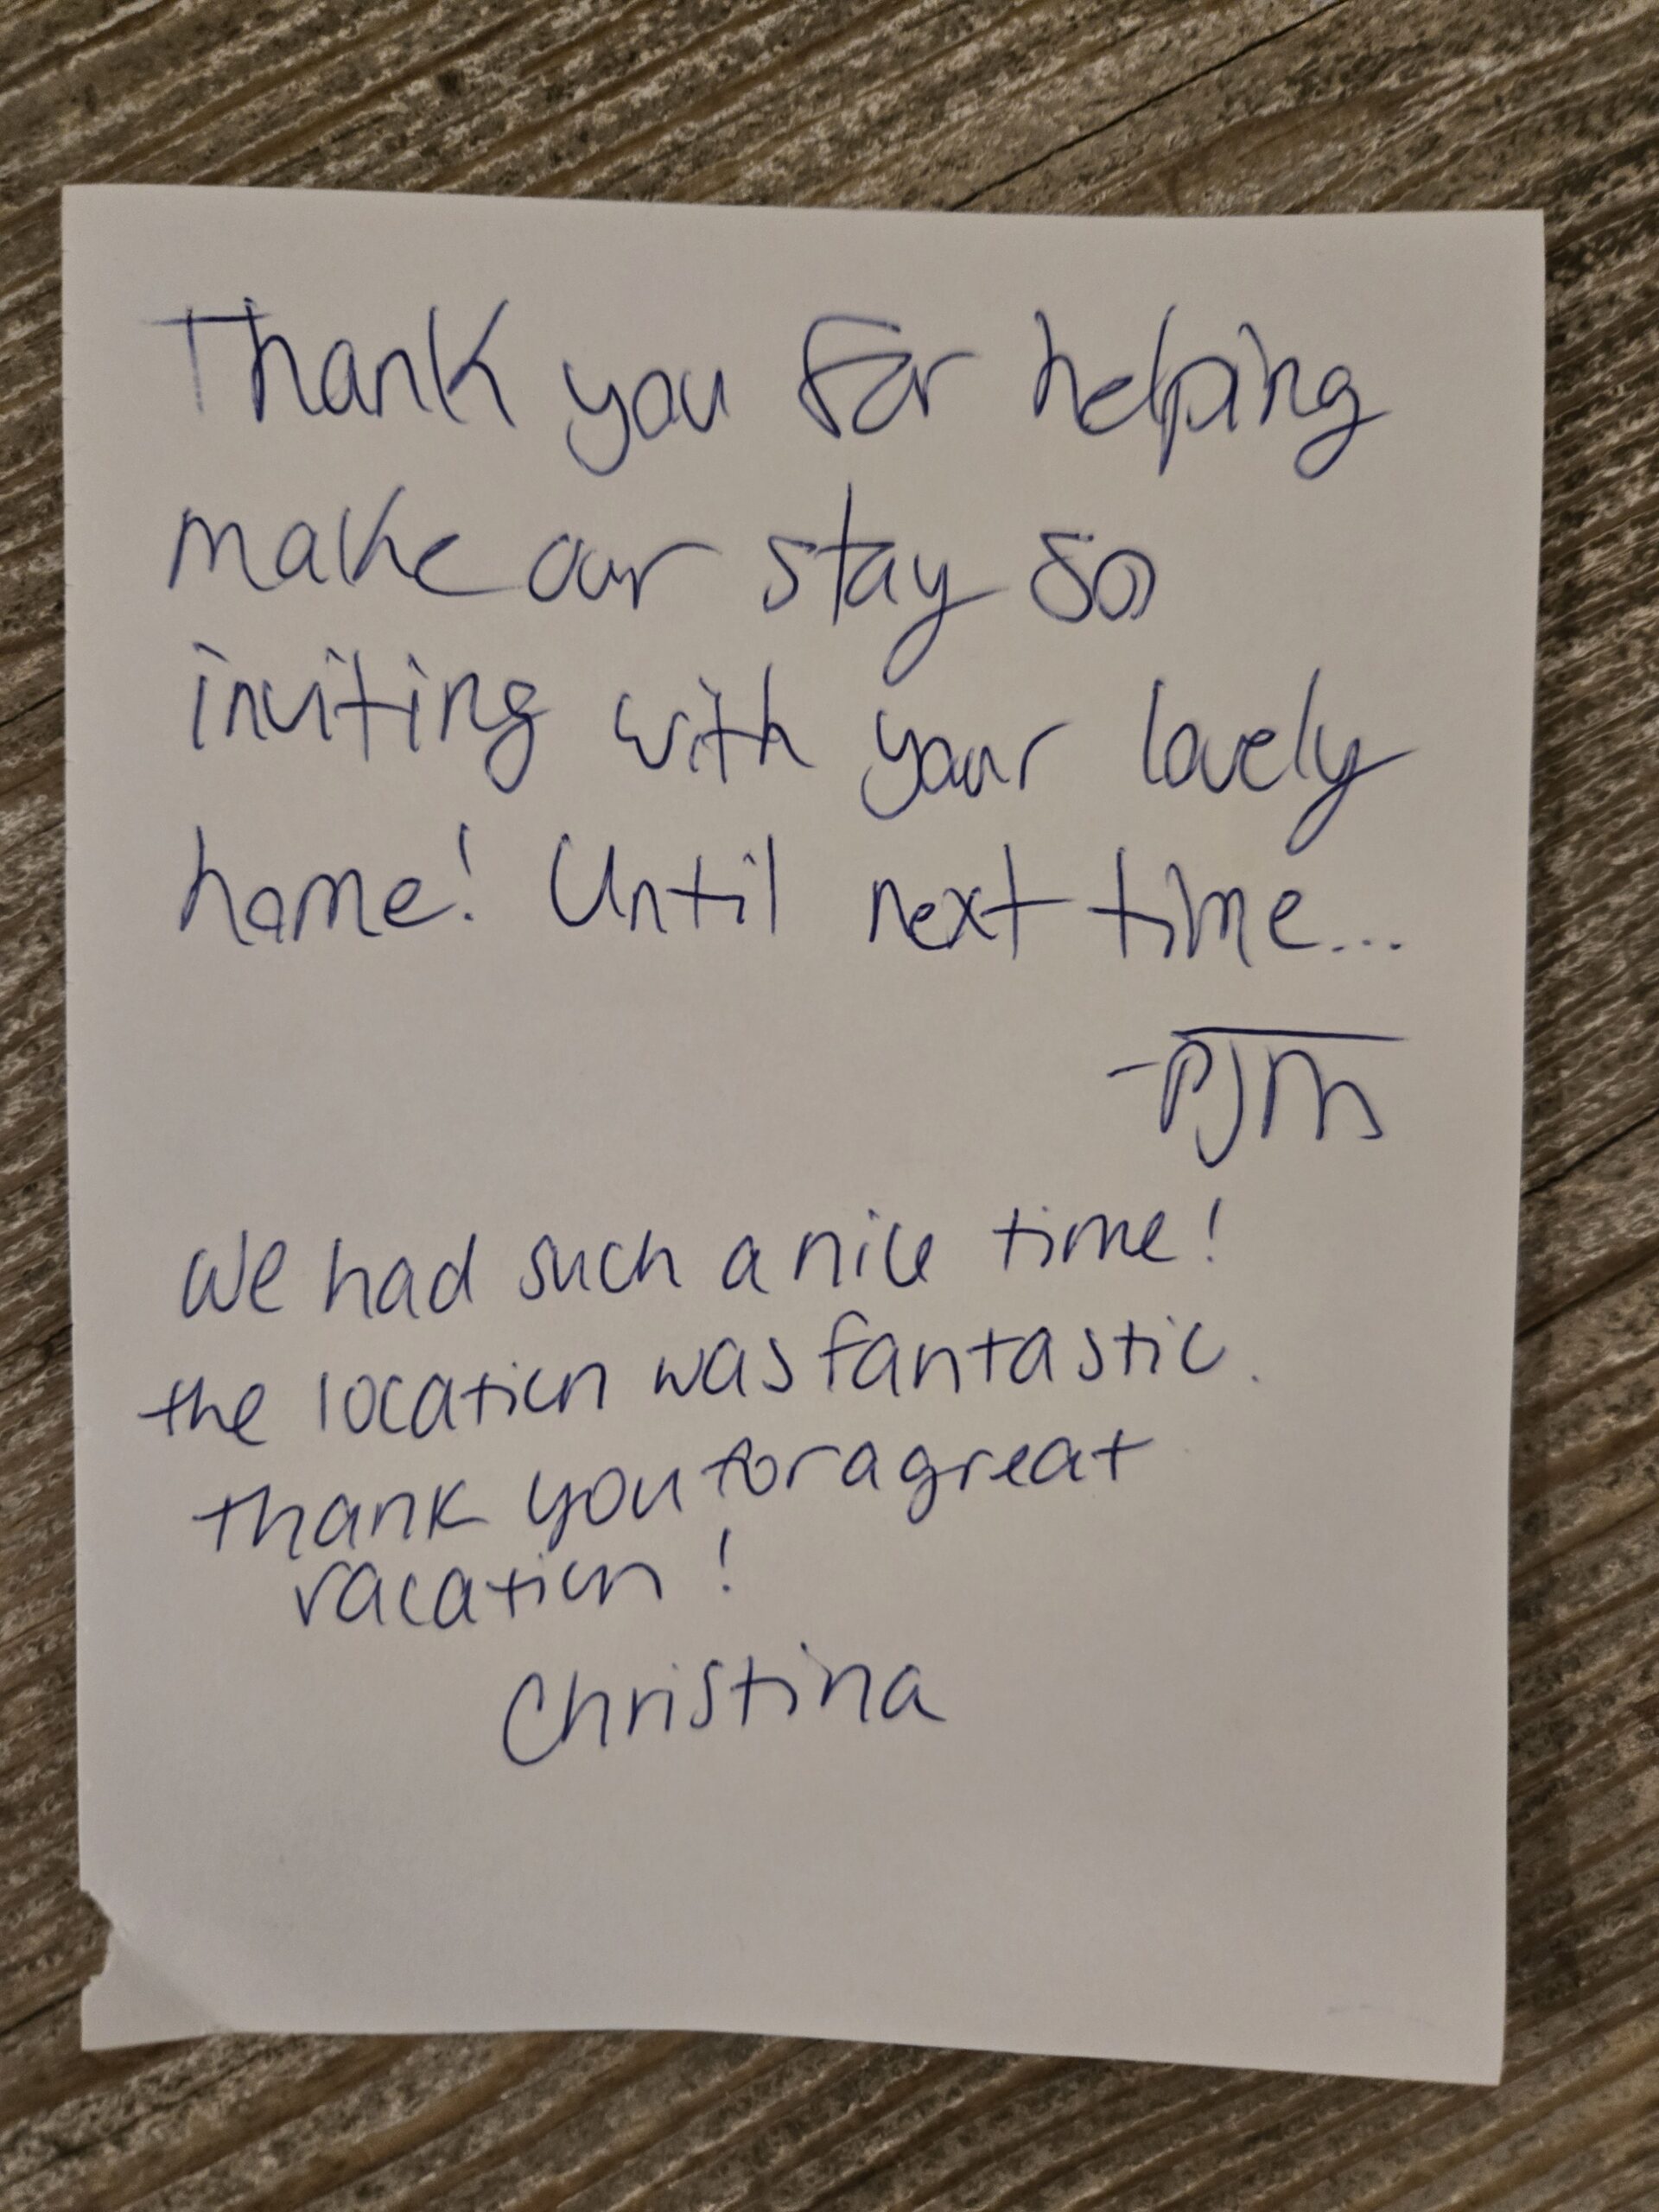 Thank you for helping
make our stay so
inviting with your lovely
home! Until next time...
-PJM
We had such a nice time!
the location was fantastic.
thank you for a great
vacation!
Christina